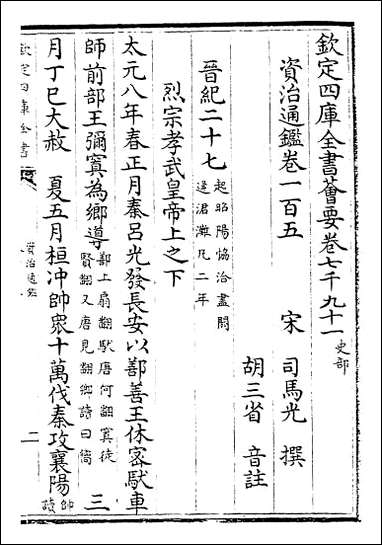 欽定四庫全書薈要卷七千九十一 史部
資治通鑑卷一百五
宋 司馬光 撰
胡三省 音註
晉紀二十七 起昭陽協洽盡閼逢涒灘凡二年
烈宗孝武皇帝上之下
太元八年春正月秦呂光發長安以鄯善王休密馱車
師前部王彌寘為鄉導 鄯上扇翻馱唐何翻寘徒賢翻又唐見翻鄉讀曰嚮 三
月丁巳大赦 夏五月桓冲帥眾十萬伐秦攻襄陽 帥讀
欽定四庫全書
資治通鑑